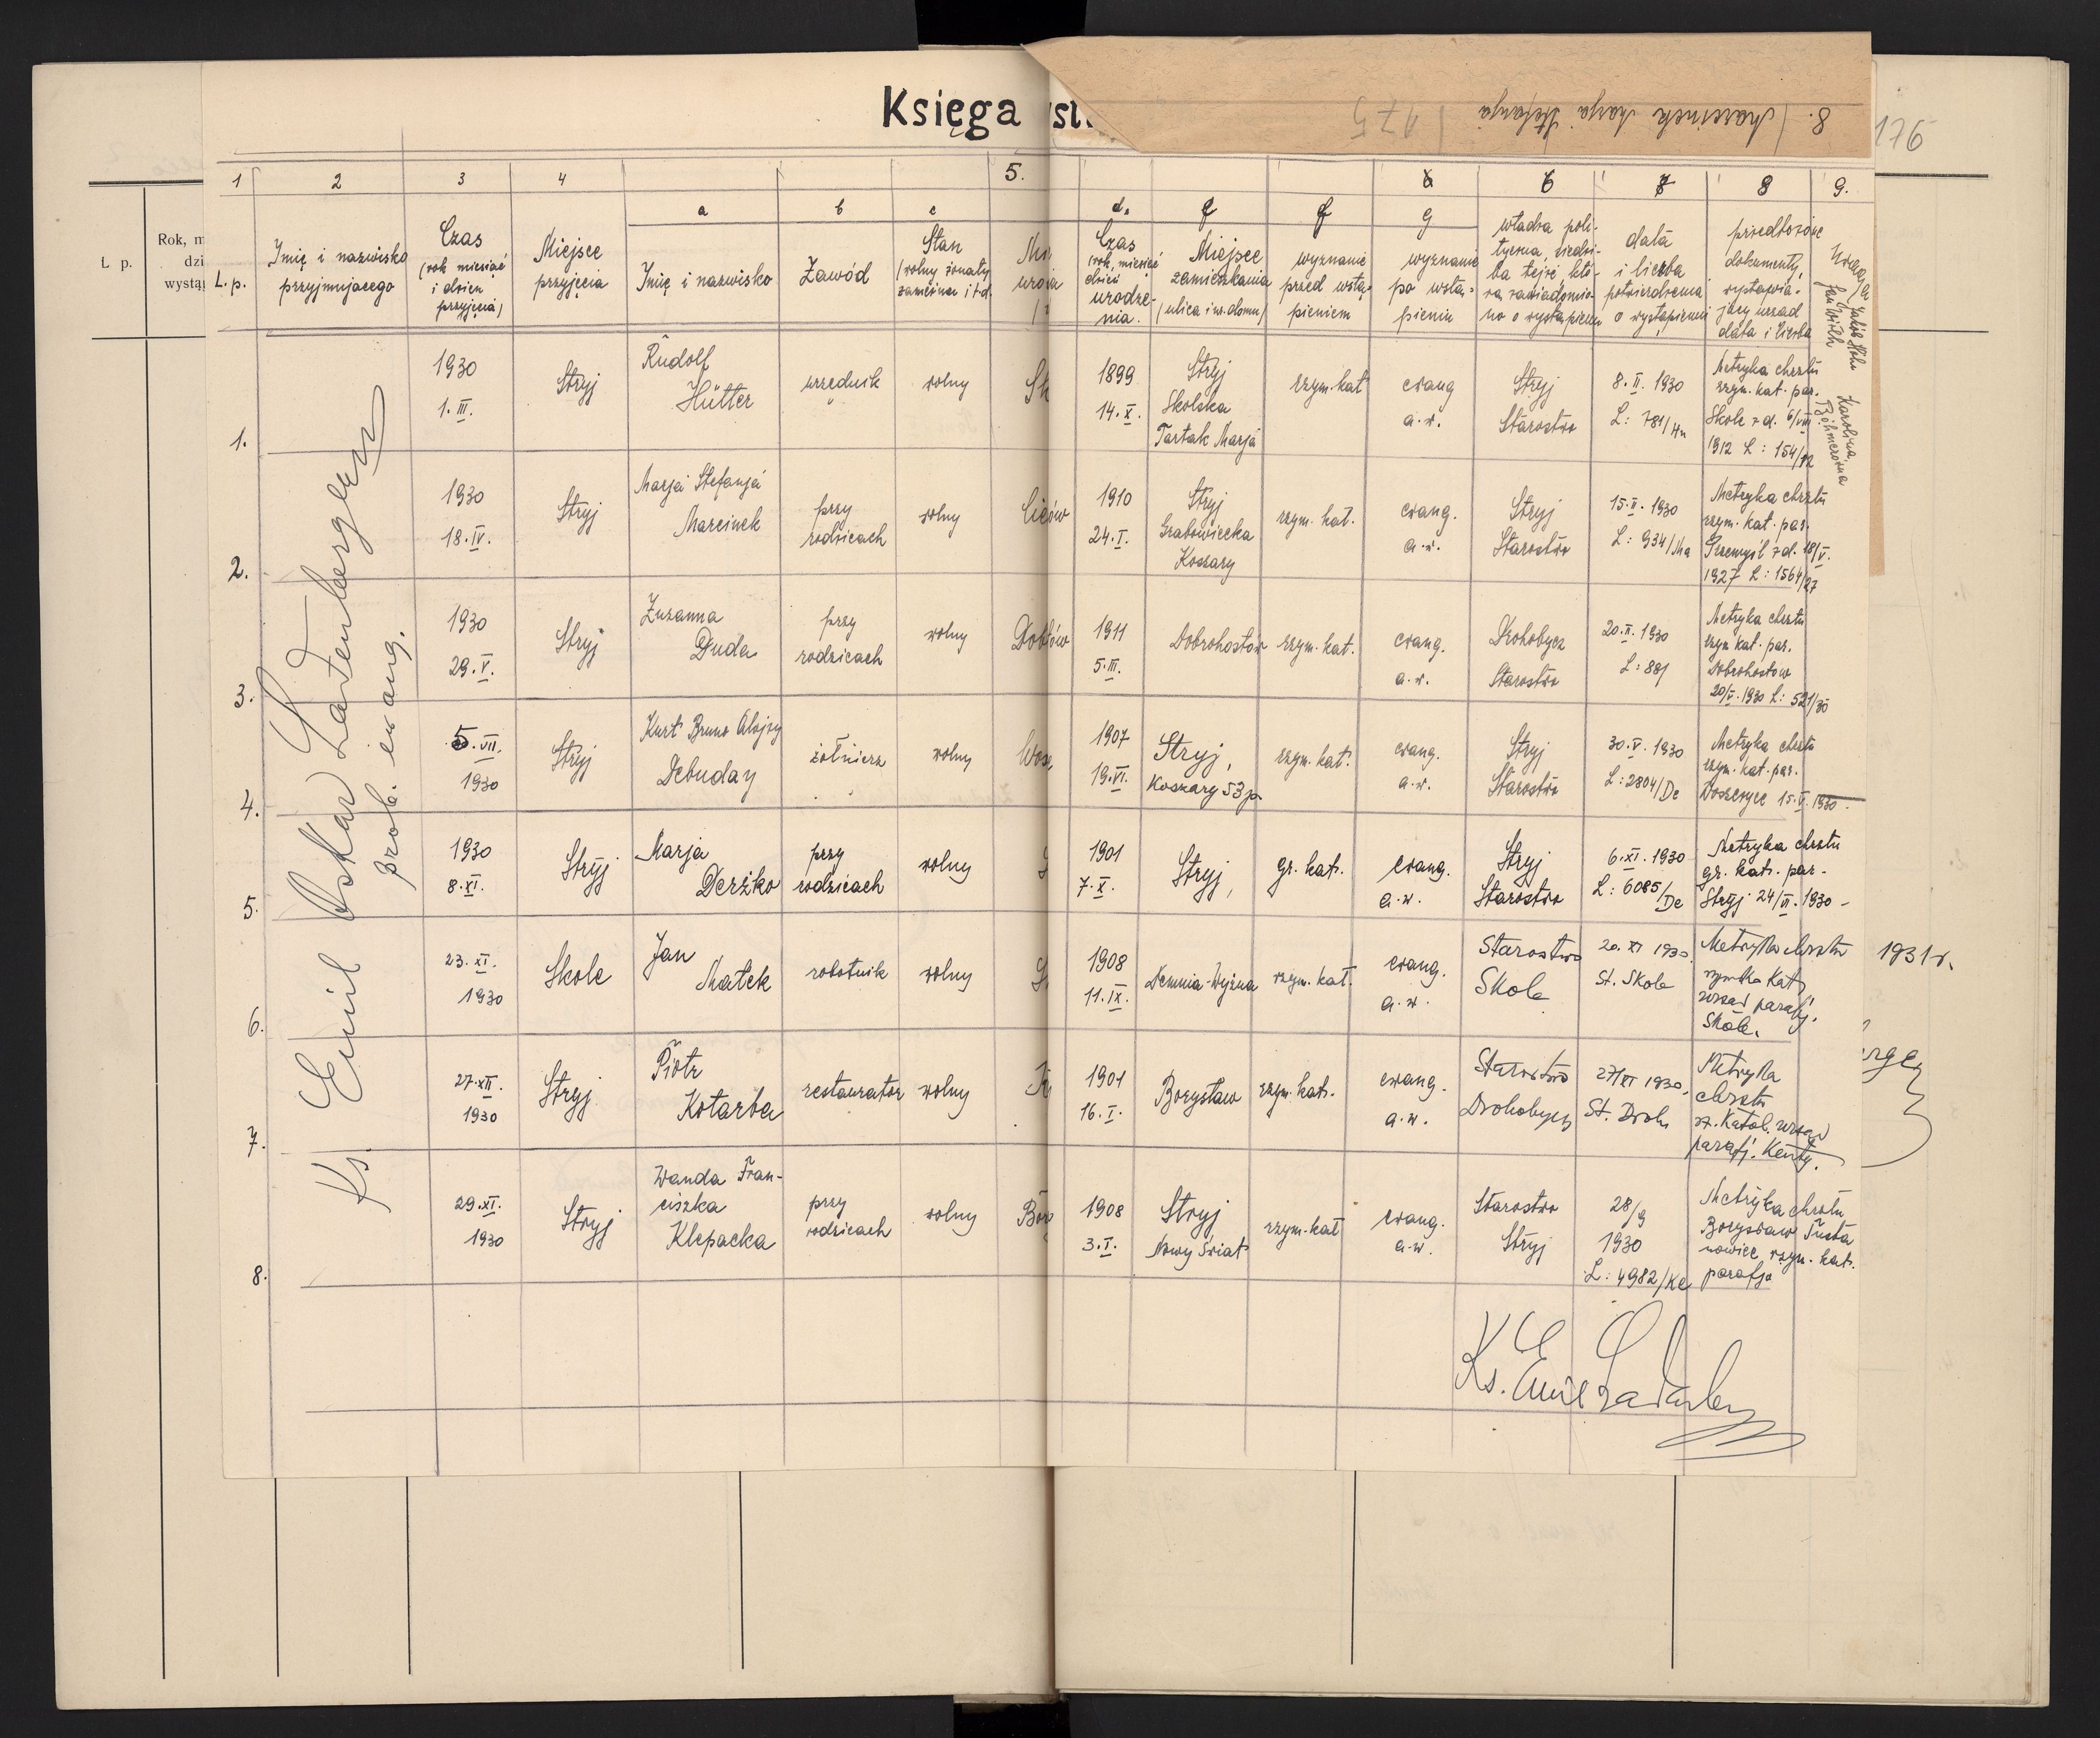 Księga
8. Marcinek Marja Stefanja 175
176
L p.
Rok, m
dzi
wystąp
1 2 3 4 5. 6 7 8 9.
a b c d. e f g
L.p.
Imię i nazwisko
przyjmującego
Czas
(rok miesiąc
i dzień
przyjęcia)
Miejsce
przyjęcia
Imię i nazwisko
Zawód
Stan
(wolny żonaty
zamężna itd.
Czas
(rok, miesiąc
dzień
urodze-
nia.
Miejsce
zamieszkania
(ulica i nr. domu)
wyznanie
przed wstą-
pieniem
wyznanie
po wstą-
pieniu
władza poli-
tyczna, siedzi-
ba tejże, któ-
rą zawiadomio-
no o wystąpieniu
data
i liczba
potwierdzenia
o wystąpieniu
przedłożone
dokumenty,
wystawia-
jący urząd
data i liczba
Ks. Emil Oskar Ladenberger
prob. ewang.
1.
1930
1. III.
Stryj
Rudolf
Hütter
urzędnik
wolny
Sk
1899
14. X.
Stryj
Skolska
Tartak Marja
rzym. kat
ewang
a. w.
Stryj
Starostwo
8. II. 1930
L: 781/Hu
Metryka chrztu
rzym. kat. par.
Skole z d. 6/VII
1912 L: 154/12
Jakób Höhn
Jan Wirth
Karolina
Böhmerówna
2.
1930
18. IV.
Stryj
Marja Stefanja
Marcinek
przy
rodzicach
wolny
1910
24. I.
Stryj
Grabowiecka
Koszary
rzym. kat.
ewang.
a. w.
Stryj
Starostwo
15. II. 1930
L: 934/Ma
Metryka chrztu
rzym. kat. par.
Przemyśl z d. 18/V.
1927 L: 1564/27
3.
1930
29. V.
Stryj
Zuzanna
Duda
przy
rodzicach
wolny
1911
5. III.
Dobrohostów
rzym. kat.
ewang.
a. w.
Drohobycz
Starostwo
20. II. 1930
L: 881
Metryka chrztu
rzym kat. par.
Dobrohostów
20/V. 1930 L: 521/30
4.
5. VII.
1930
Stryj
Kurt Bruno Alojzy
Debuday
żołnierz
wolny
Wosz
1907
19. VI.
Stryj,
Koszary 53 p
rzym. kat.
ewang.
a. w.
Stryj
Starostwo
30. V. 1930
L: 2804/De
Metryka chrztu
rzym. kat. par.
Woszczyce 15. V. 1930.
5.
1930
8. XI.
Stryj
Marja
Derżko
przy
rodzicach
wolny
1901
7. X.
Stryj,
gr. kat.
ewang.
a. w.
Stryj
Starostwo
6. XI. 1930
L: 6085/De
Metryka chrztu
gr. kat. par.
Stryj 24/VI. 1930 -
6.
23. XI.
1930
Skole
Jan
Matek
robotnik
wolny
1908
11. IX.
Demnia-Wyżna
rzym. kat.
ewang.
a. w.
Starostwo
Skole
20. XI 1930.
St. Skole
Metryka chrztu
rzymsko kat.
urząd parafj.
Skole.
1931 r.
7.
27. XII.
1930
Stryj
Piotr
Kotarba
restaurator
wolny
1901
16. I.
Borysław
rzym. kat.
ewang.
a. w.
Starostwo
Drohobycz
27/XI 1930.
St. Droh.
Metryka
chrztu
rz. Katol. urząd
parafj. Kenty.
8.
29. XI.
1930
Stryj
Wanda Fran-
ciszka
Klepacka
przy
rodzicach
wolny
Bor
1908
3. I.
Stryj
Nowy Świat
rzym. kat
ewang.
a. w.
Starostwo
Stryj
28/9
1930
L: 4982/Ke
Metryka chrztu
Borysław Tusta
nowice rzym. kat.
parafja
Ks. Emil Ladenberger